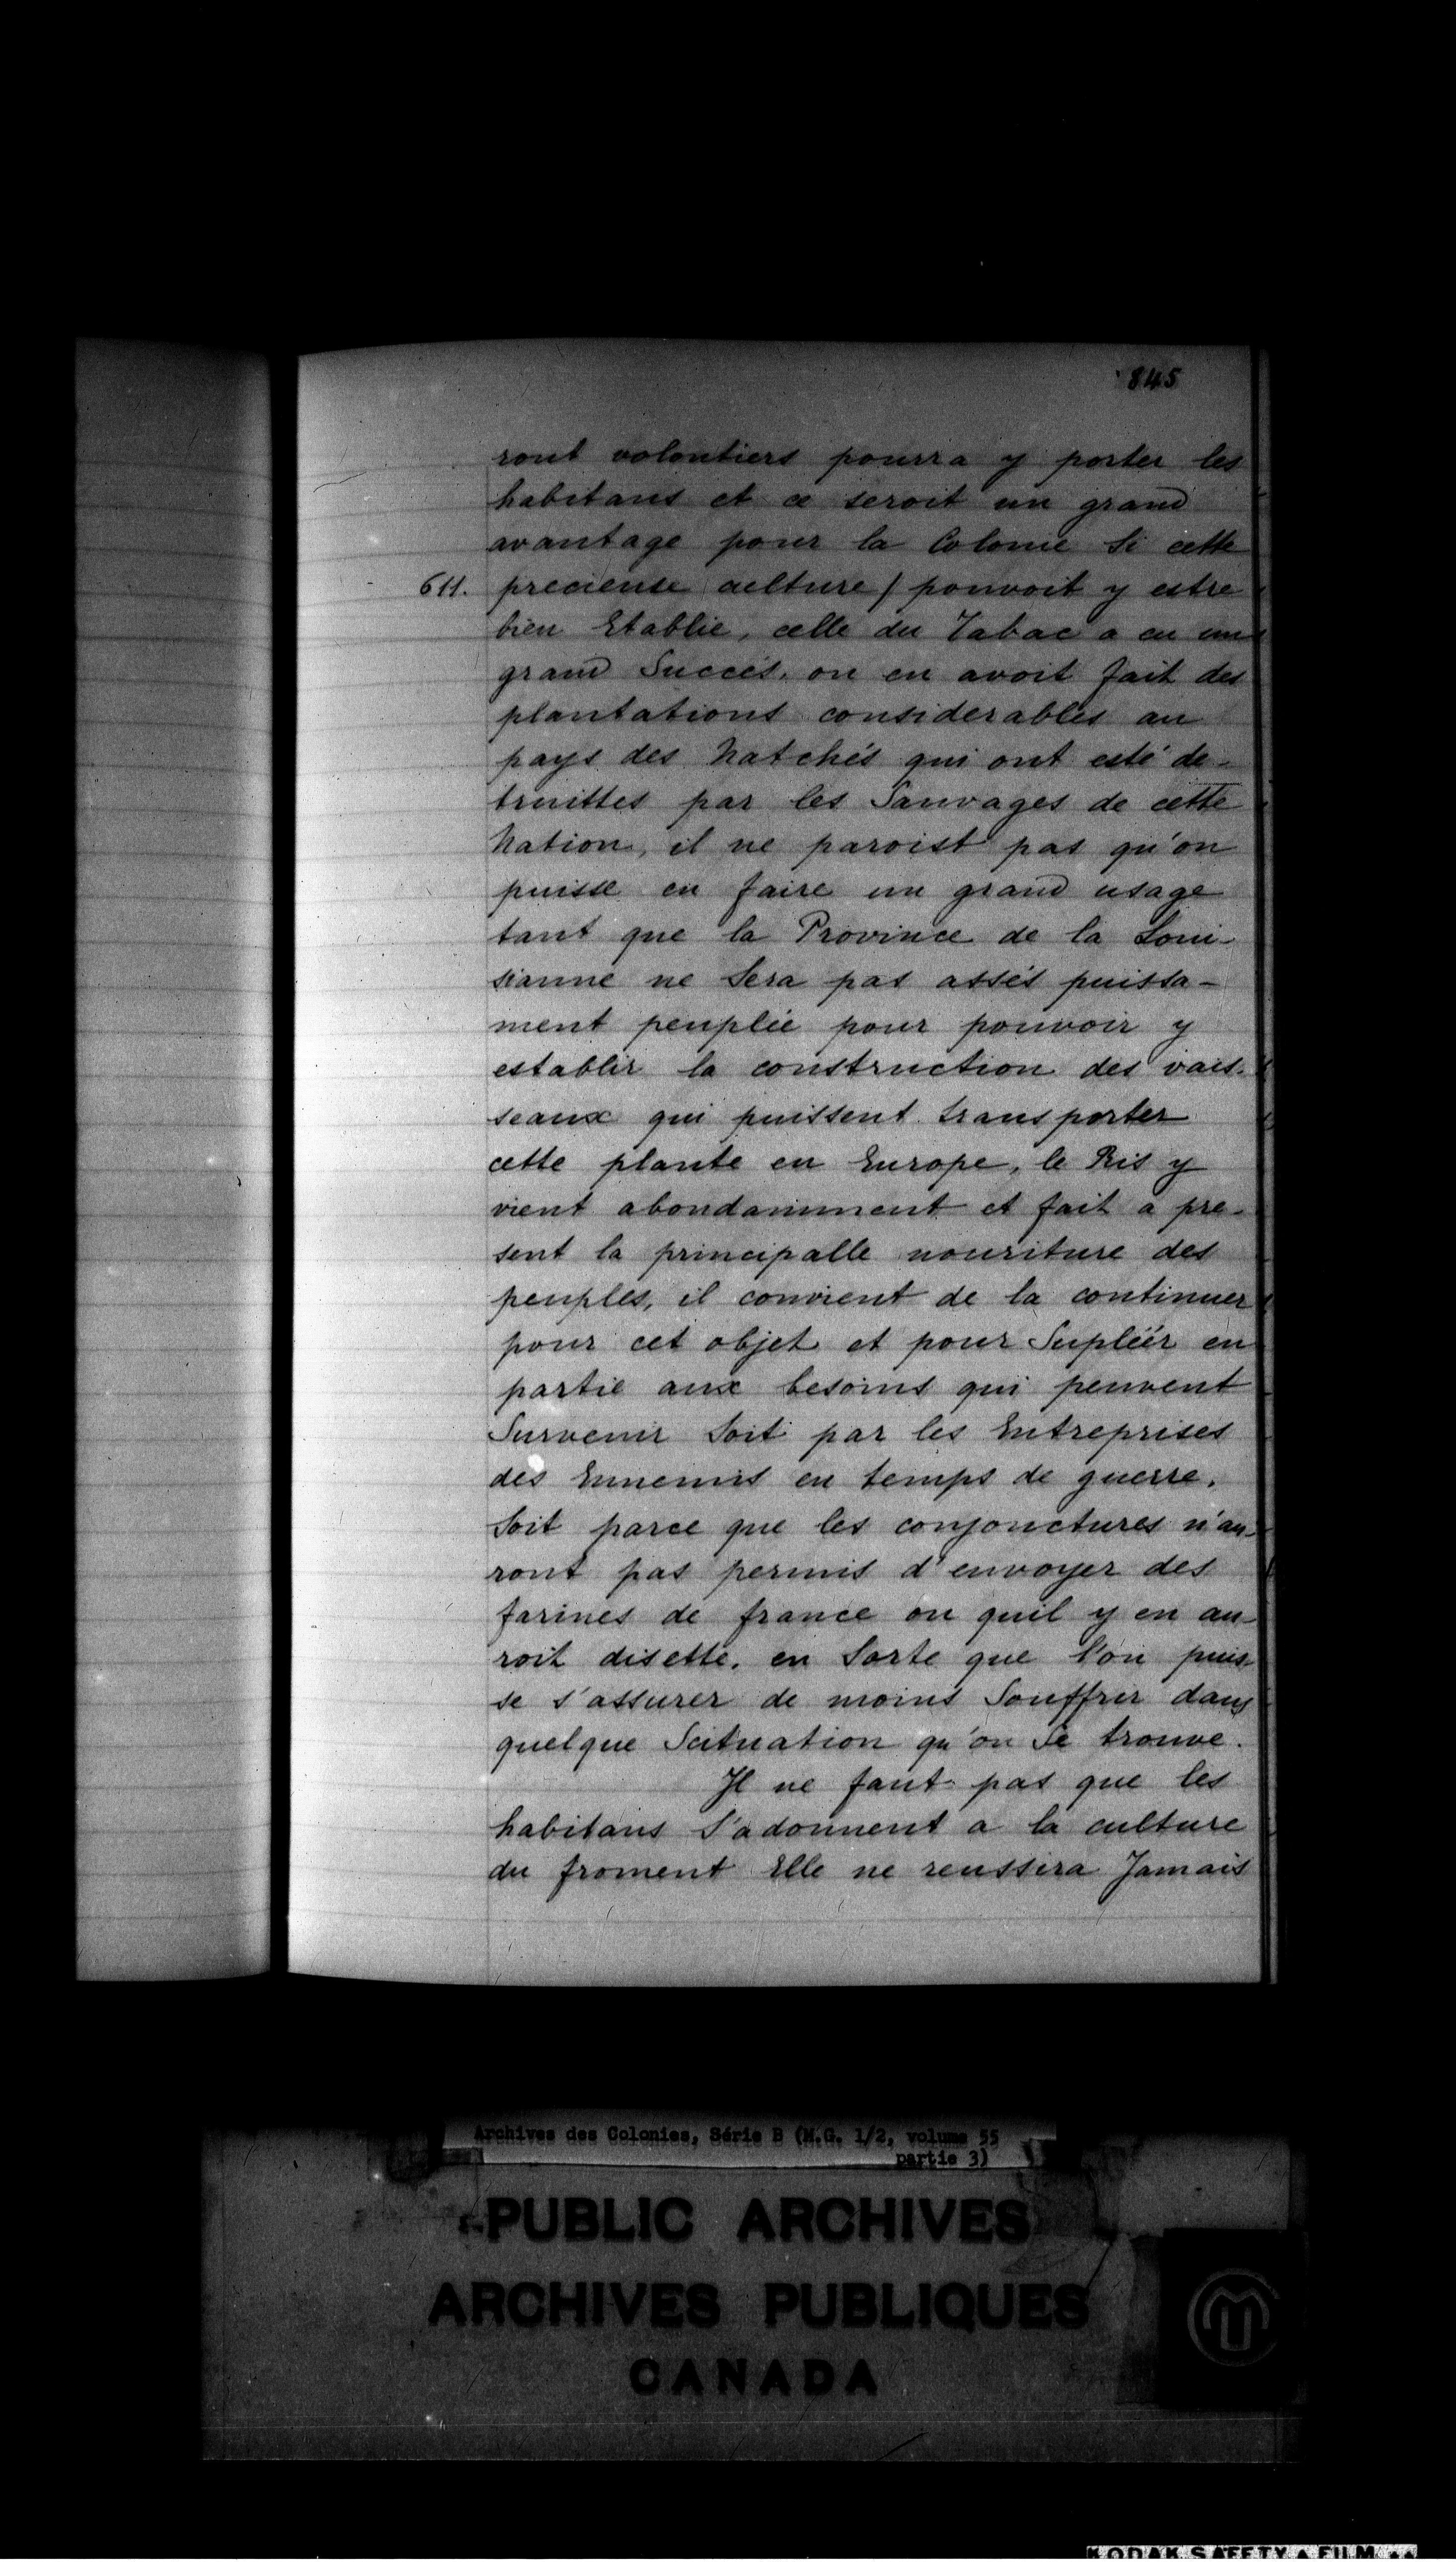 845
ront volontiers pourra y porter les
habitans et ce seroit un grand
avantage pour la Colonie Si cette
611. precieuse culture / pouvoit y estre
bien Etablie, celle du Tabac a eu un
grand Succés. on en avoit fait des
plantations considerables au
pays des Natchés qui ont esté de-
truittes par les Sauvages de cette
Nation, il ne paroist pas qu'on
puisse en faire un grand usage
tant que la Province de la Loui-
sianne ne Sera pas assés puissa-
ment peuplée pour pouvoir y
establir la construction des vais-
seaux qui puissent transporter
cette plante en Europe, le Ris y
vient abondamment et fait a pre-
sent la principalle nouriture des
peuples, il convient de la continuer
pour cet objet et pour Supléér en
partie aux besoins qui peuvent
Survenir Soit par les Entreprises
des Ennemis en temps de guerre,
Soit parce que les conjonctures n'au-
ront pas permis d'envoyer des
farines de france ou quil y en au-
roit disette, en Sorte que l'on puis-
se s'assurer de moins Souffrir dans
quelque Scituation qu'on Se trouve.
Il ne faut pas que les
habitans S'adonnent a la culture
du froment Elle ne reussira Jamais
Archives des Colonies, Série B (M.G. 1/2, volume 55
partie 3)
PUBLIC ARCHIVES
ARCHIVES PUBLIQUES
CANADA
KODAK SAFETY FILM